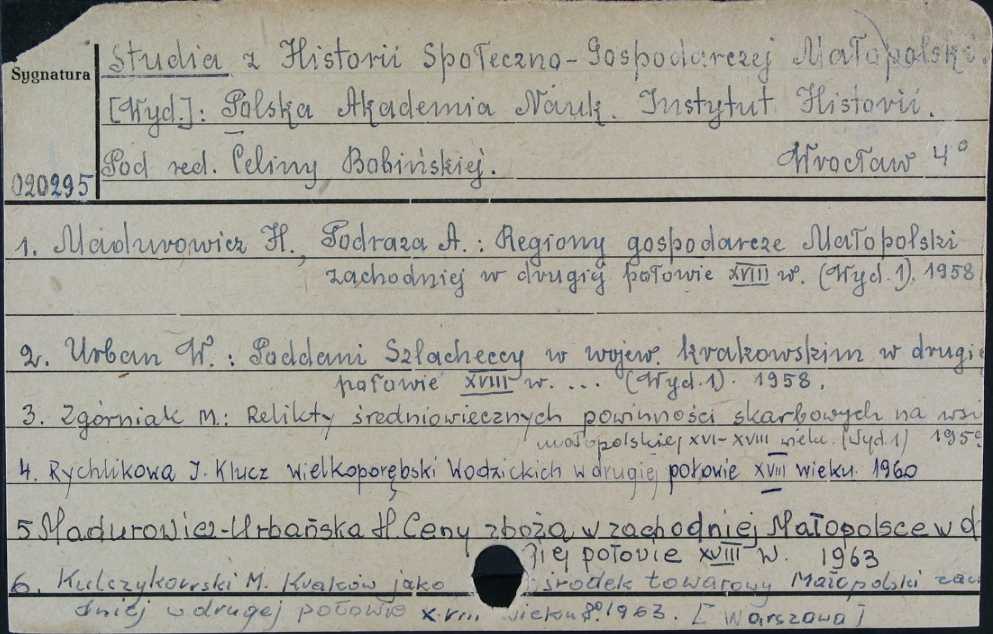 Studia z Historii Społeczno-Gospodarczej Małopolski.
Sygnatura
[Wyd.]: Polska Akademia Nauk. Instytut Historii.
Pod red. Celiny Bobińskiej. Wrocław 4°
020295
1. Madurowicz H., Podraza A.: Regiony gospodarcze Małopolski
zachodniej w drugiej połowie XVIII w. (Wyd.1). 1958
2. Urban W.: Poddani Szlacheccy w wojew. krakowskim w drugie
połowie XVIII w. ... (Wyd.1). 1958.
3. Zgórniak M.: Relikty średniowiecznych powinności skarbowych na wsi
małopolskiej XVI-XVIII wieku. (Wyd.1) 1959
4. Rychlikowa I. Klucz wielkoporębski Wodzickich w drugiej połowie XVIII wieku. 1960
5 Madurowicz-Urbańska H. Ceny zboża w zachodniej Małopolsce w d
giej połowie XVIII w. 1963
6. Kulczykowski M. Kraków jako ośrodek towarowy Małopolski zach
dniej w drugej połowie XVIII wieku 8°. 1963. [Warszawa]